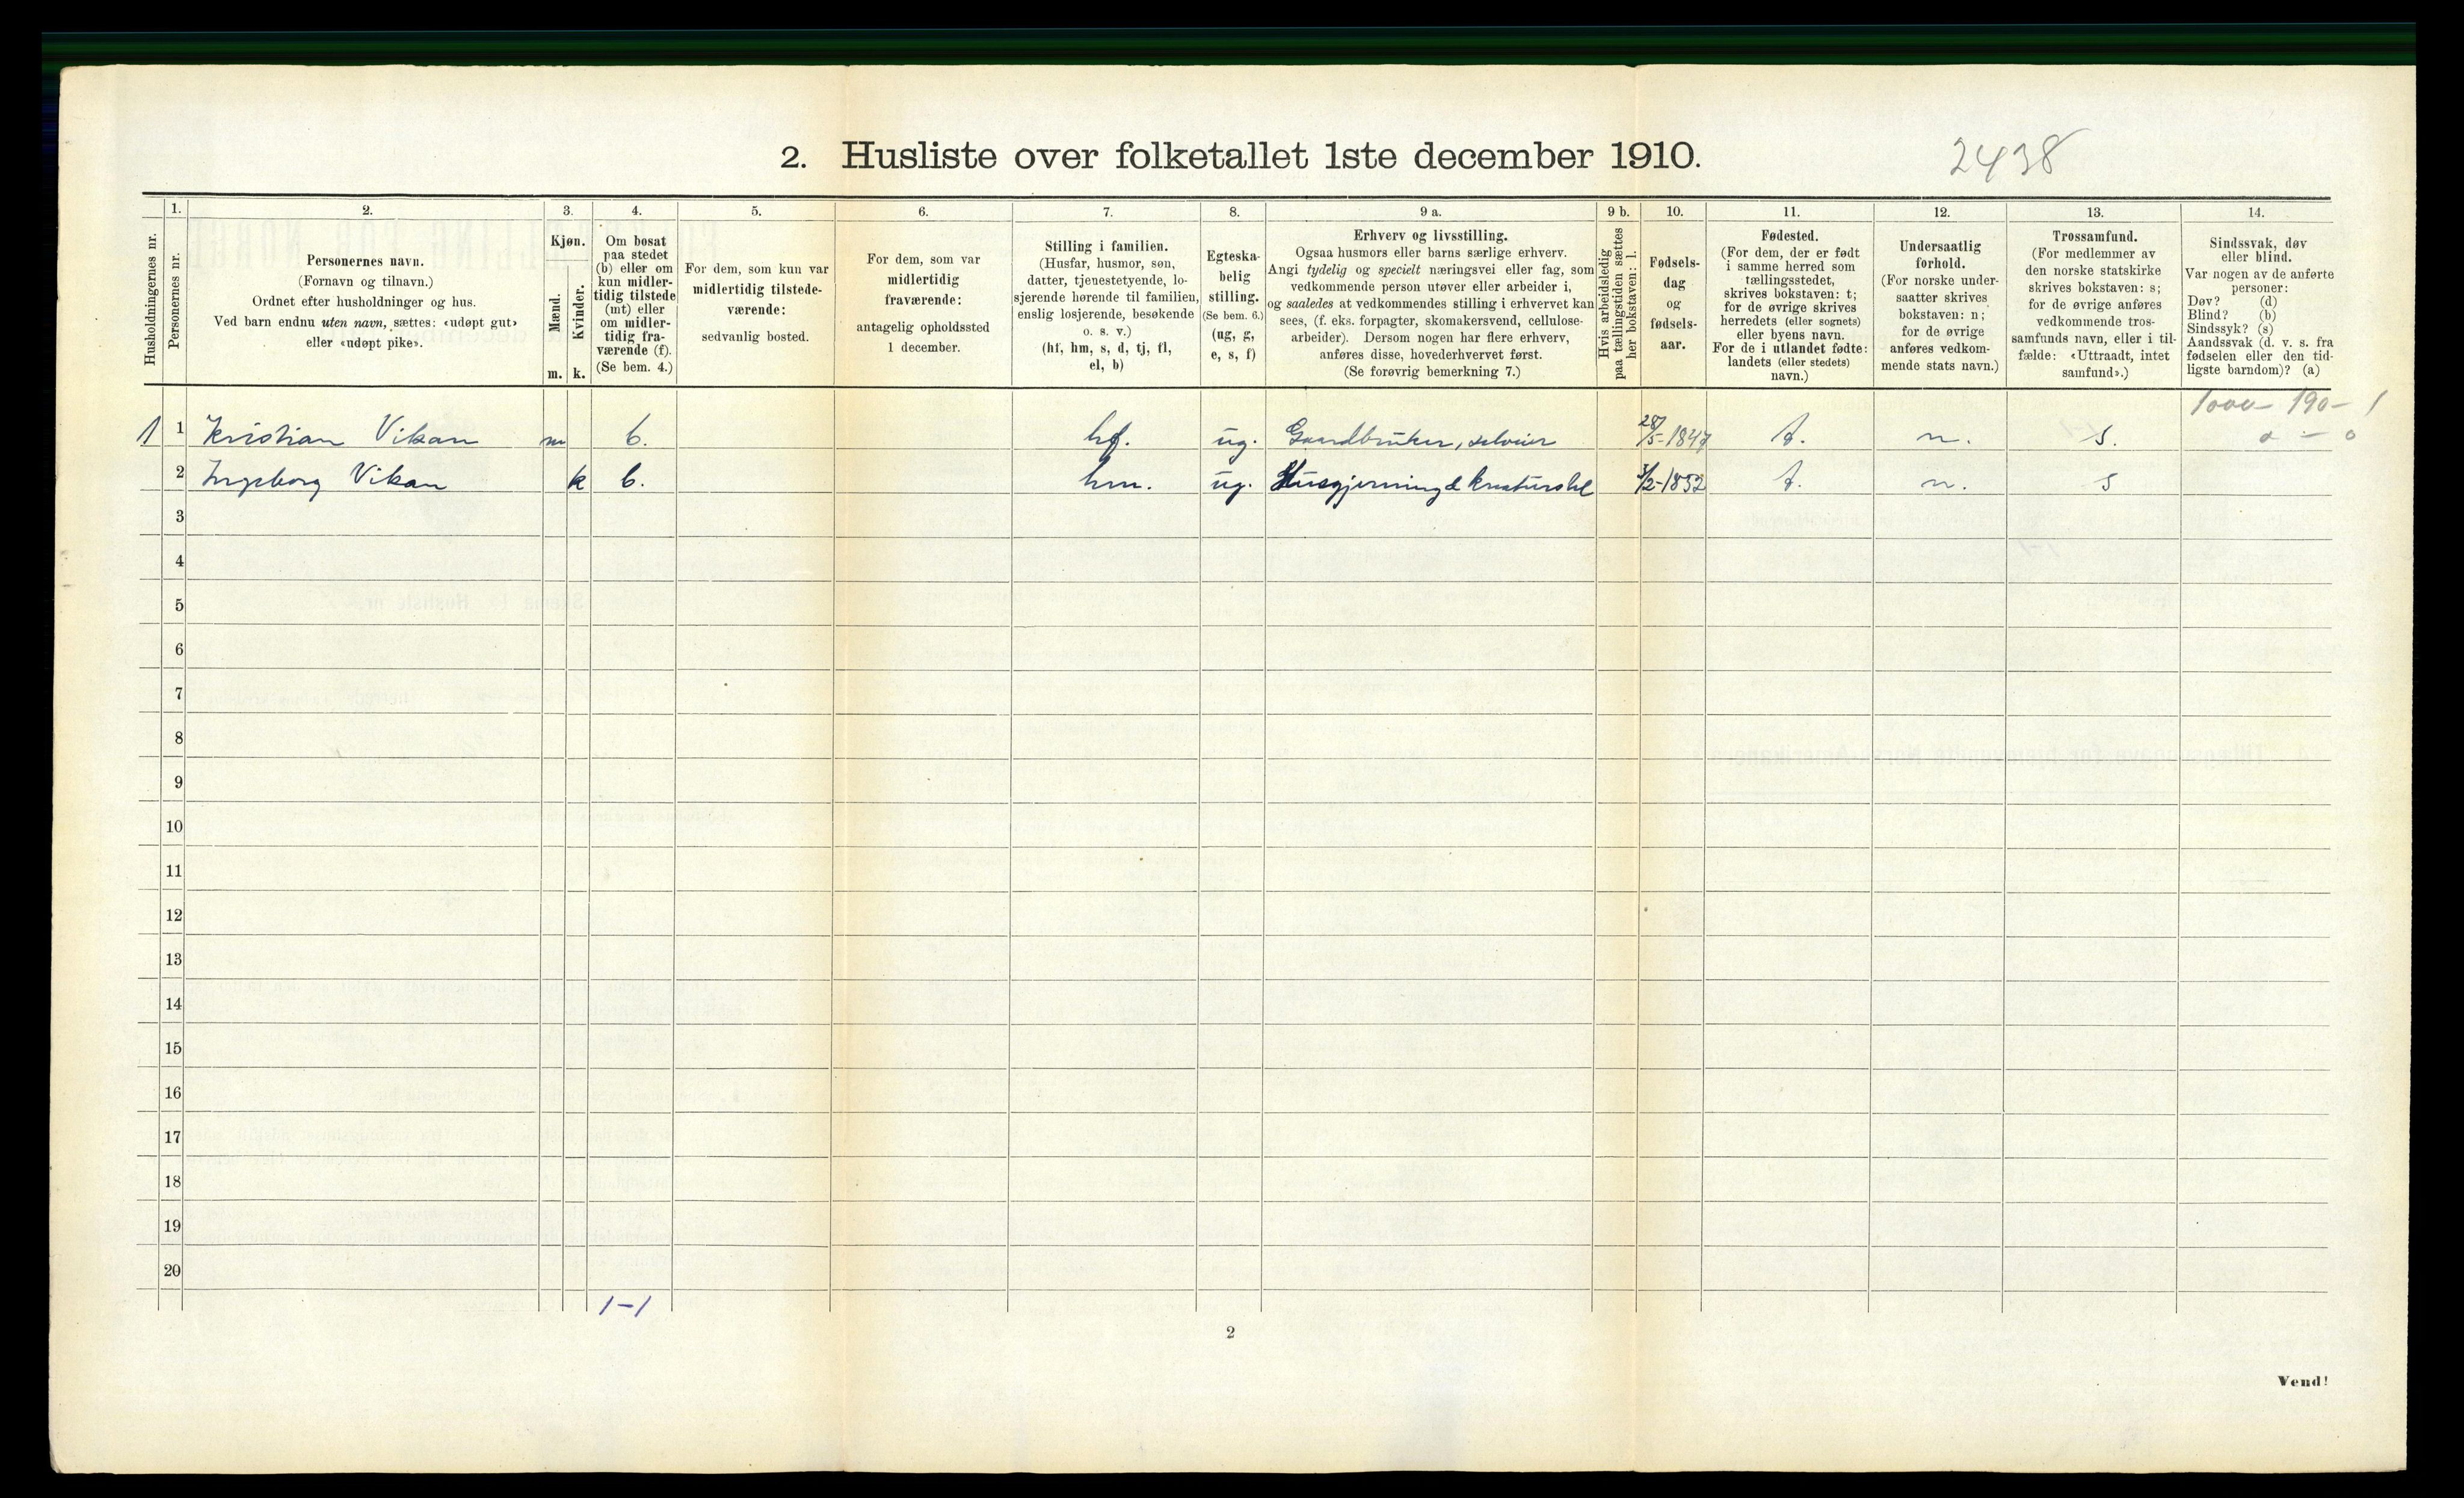 2. Husliste over folketallet 1ste december 1910.
2438
Husholdningernes nr.
1.
Personernes nr.
2.
Personernes navn.
(Fornavn og tilnavn.)
Ordnet efter husholdninger og hus.
Ved barn endnu uten navn, sættes: «udøpt gut»
eller «udøpt pike».
3.
Kjøn.
Mænd.
Kvinder.
m. k.
4.
Om bosat
paa stedet
(b) eller om
kun midler-
tidig tilstede
(mt) eller
om midler-
tidig fra-
værende (f).
(Se bem. 4.)
5.
For dem, som kun var
midlertidig tilstede-
værende:
sedvanlig bosted.
6.
For dem, som var
midlertidig
fraværende:
antagelig opholdssted
1 december.
7.
Stilling i familien.
(Husfar, husmor, søn,
datter, tjenestetyende, lo-
sjerende hørende til familien,
enslig losjerende, besøkende
o. s. v.)
(hf, hm, s, d, tj, fl,
el, b)
8.
Egteska-
belig
stilling.
(Se bem. 6.)
(ug, g,
e, s, f)
9 a.
Erhverv og livsstilling.
Ogsaa husmors eller barns særlige erhverv.
Angi tydelig og specielt næringsvei eller fag, som
vedkommende person utøver eller arbeider i,
og saaledes at vedkommendes stilling i erhvervet kan
sees, (f. eks. forpagter, skomakersvend, cellulose-
arbeider). Dersom nogen har flere erhverv,
anføres disse, hovederhvervet først.
(Se forøvrig bemerkning 7.)
9 b.
Hvis arbeidsledig
paa tællingstiden sættes
her bokstaven: l.
10.
Fødsels-
dag
og
fødsels-
aar.
11.
Fødested.
(For dem, der er født
i samme herred som
tællingsstedet,
skrives bokstaven: t;
for de øvrige skrives
herredets (eller sognets)
eller byens navn.
For de i utlandet fødte:
landets (eller stedets)
navn.)
12.
Undersaatlig
forhold.
(For norske under-
saatter skrives
bokstaven: n;
for de øvrige
anføres vedkom-
mende stats navn.)
13.
Trossamfund.
(For medlemmer av
den norske statskirke
skrives bokstaven: s;
for de øvrige anføres
vedkommende tros-
samfunds navn, eller i til-
fælde: «Uttraadt, intet
samfund».)
14.
Sindssvak, døv
eller blind.
Var nogen av de anførte
personer:
Døv? (d)
Blind? (b)
Sindssyk? (s)
Aandssvak (d. v. s. fra
fødselen eller den tid-
ligste barndom)? (a)
1000 - 190 - 1
1 1 Kristian Vikan m b. hf. ug. Gaardbruker, selveier 28/5-1847 t. n. s. 0 - 0
2 Ingeborg Vikan k b. hm. ug. Husgjerning & kreaturstel 3/2-1852 t. n. s
3
4
5
6
7
8
9
10
11
12
13
14
15
16
17
18
19
20
1-1
2
Vend!